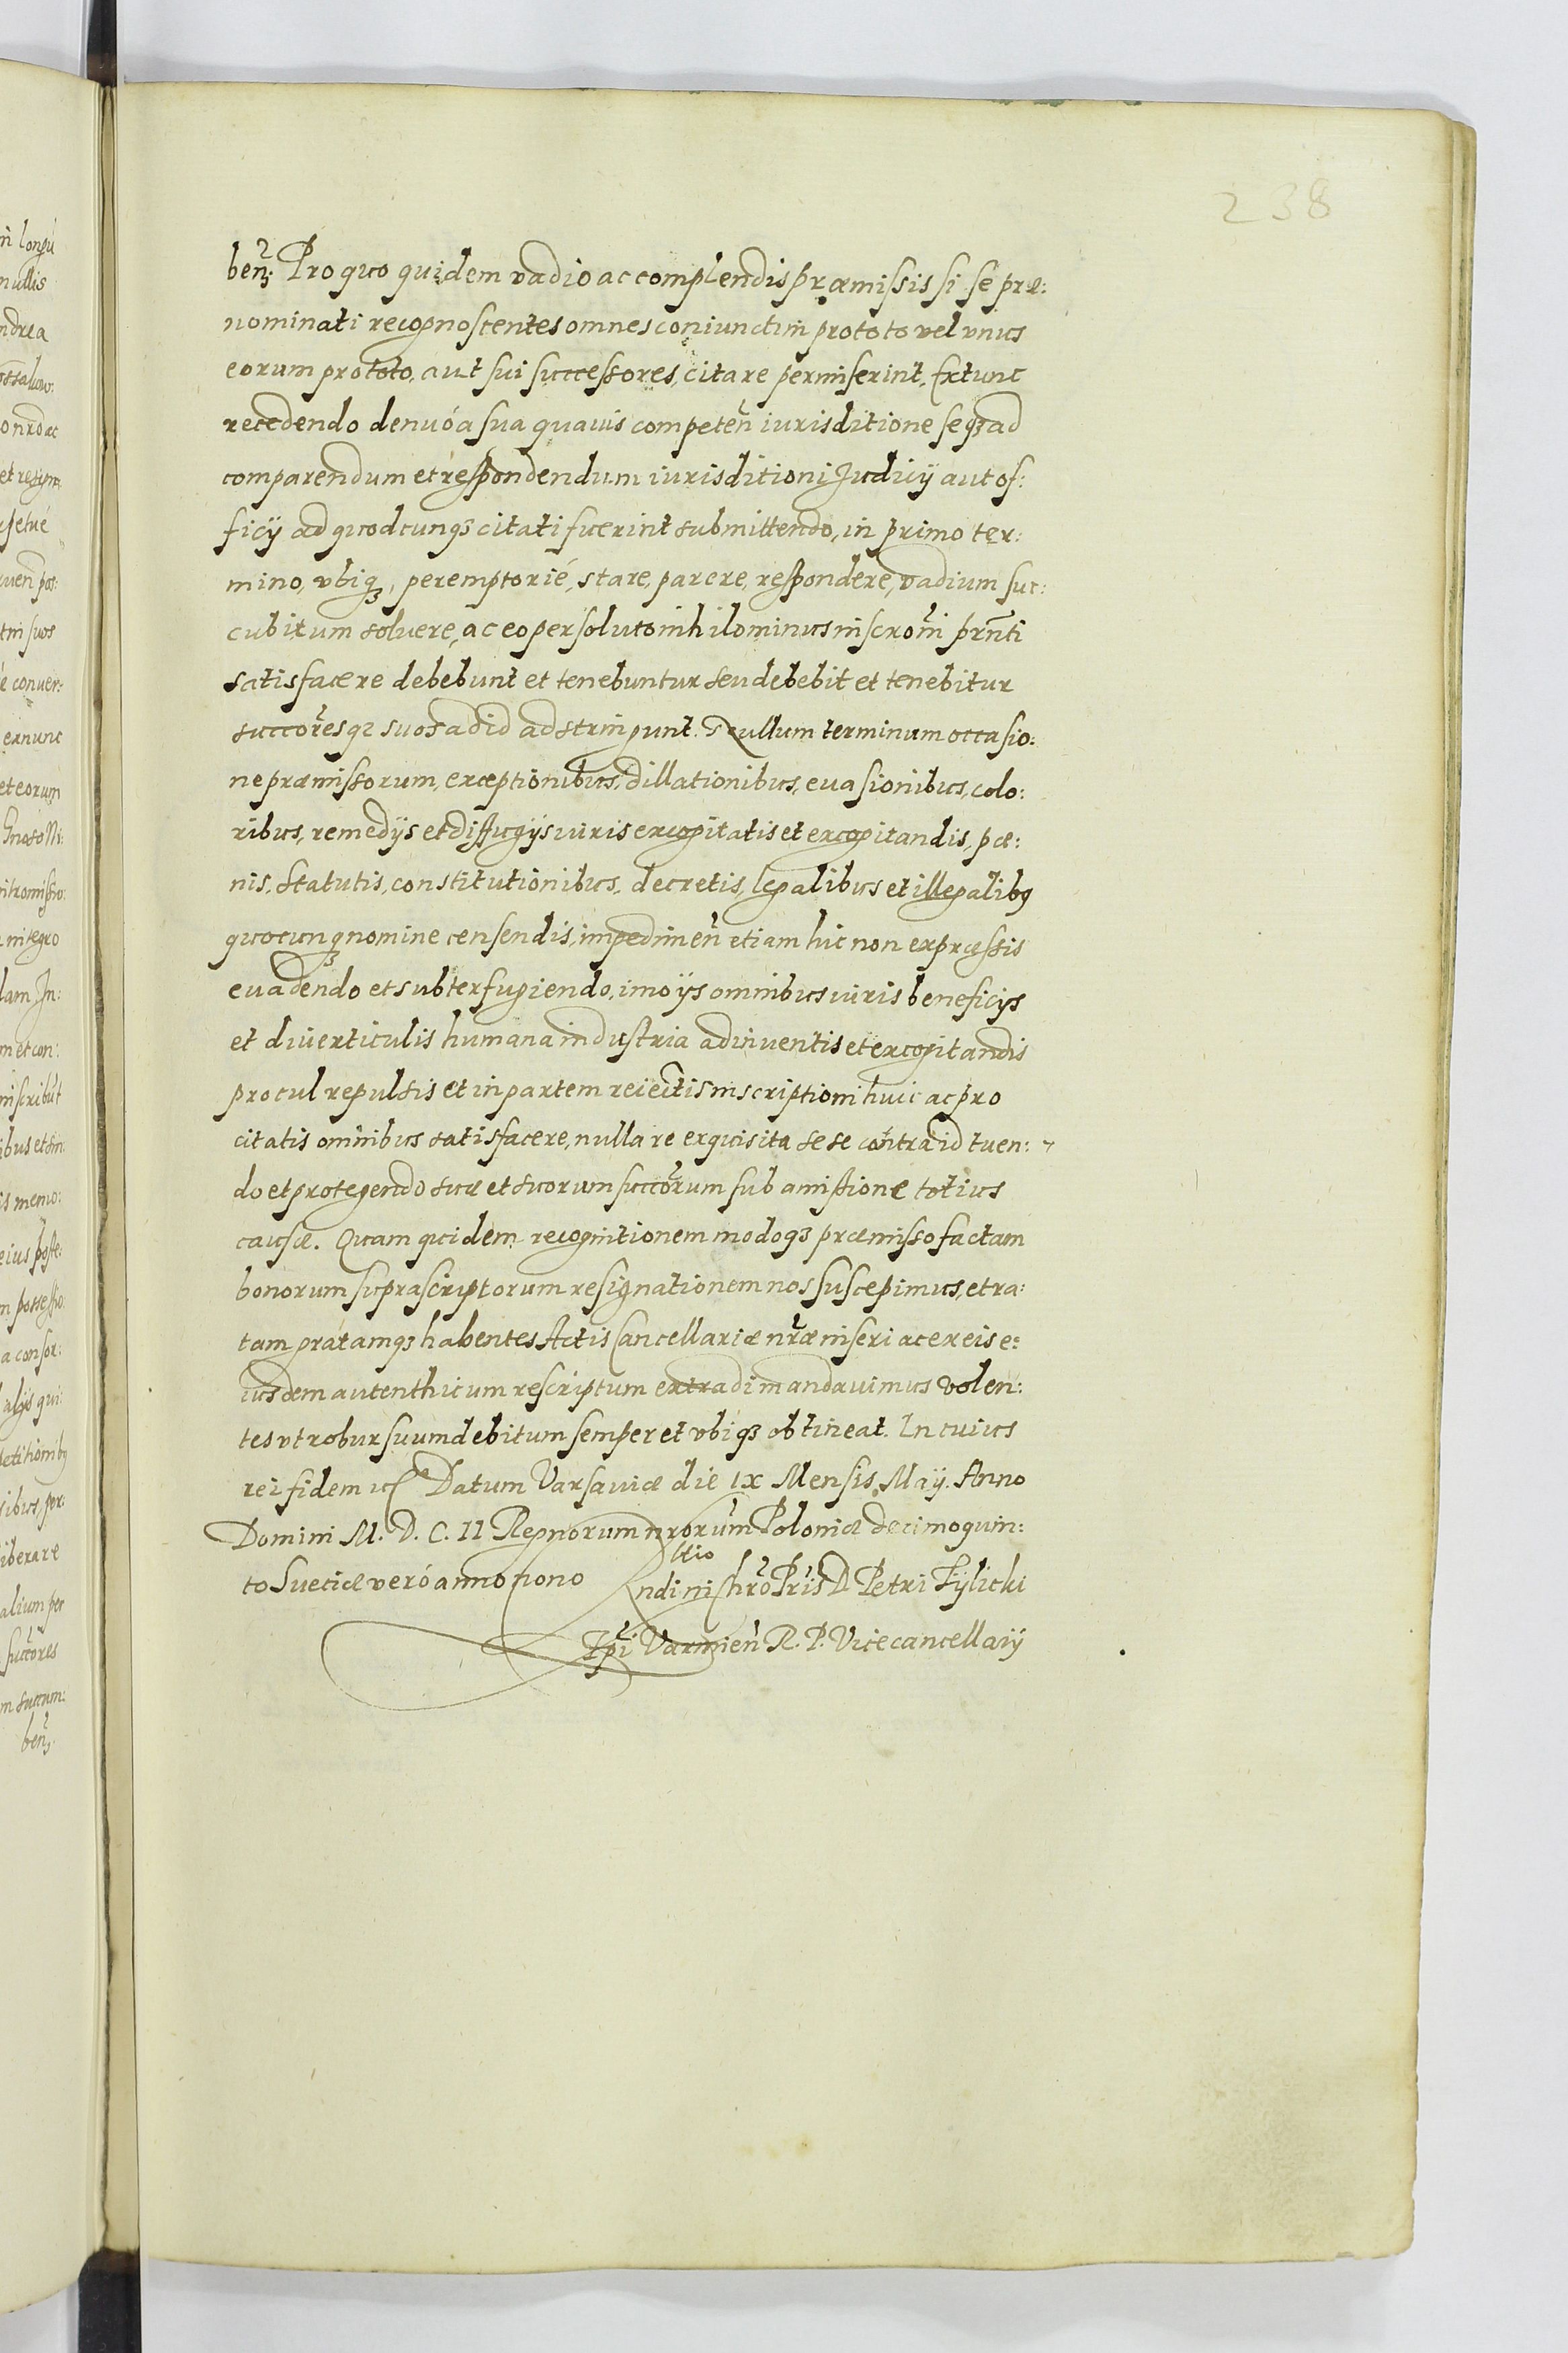 238
ben̄ꝫ Pro quo quidem vadio ac complendis præmissis si se præ:
nominati recognoscentes omnes coniunctim pro toto vel vnus
eorum pro toto, aut sui successores, citare permiserint, Extunc
recedendo denuó a sua quauis competen̄ iurisditione seqꝫ ad
comparendum et respondendum iurisditioni Judicij aut of:
ficij ad quodcunqꝫ citati fuerint submittendo, in primo ter:
mino, vbiqꝫ, peremptorié, stare, parere, respondere, vadium suc:
cubitum soluere, ac eo persoluto nihilominus inscro̅ni prn̅ti
satisfacere debebunt et tenebuntur seu debebit et tenebitur
succo̅resqꝫ suos ad id adstringunt. Nullum terminum occasio:
ne præmissorum, exceptionibus, dillationibus, euasionibus, colo:
ribus, remedijs et diffugijs iuris excogitatis et excogitandis, pæ:
nis, statutis, constitutionibus, decretis, legalibus et illegalibꝫ
quocunqꝫ nomine censendis, impedimen̄ etiam hic non expræssis
euadendo et subterfugiendo, imo ijs omnibus iuris beneficijs
et diuerticulis humana industria adinuentis et excogitandis
procul repulsis et in partem reiectis inscriptioni huic ac pro
citatis omnibus satisfacere, nulla re exquisita sese contra id tuen:
do et protegendo suæ et suorum succo̅rum sub amissione totius
causæ. Quam quidem recognitionem modoqꝫ præmisso factam
bonorum suprascriptorum resignationem nos suscepimus, et ra:
tam gratamqꝫ habentes Actis Cancellariæ nr̅æ inseri ac ex eis e:
iusdem autenthicum rescriptum extradi mandauimus volen:
tes vt robur suum debitum semper et vbiqꝫ obtineat. In cuius
rei fidem Datum Varsauiæ die IX Mensis Maij. Anno
Domini M. D. C. II Regnorum nr̅orum Poloniæ decimoquin:
to Sueciæ veró anno nono R̅ndi in Chr̅o Pr̅is D. Petri Tylicki
Ep̅i Varmien̄ R. P. Vicecancellarij